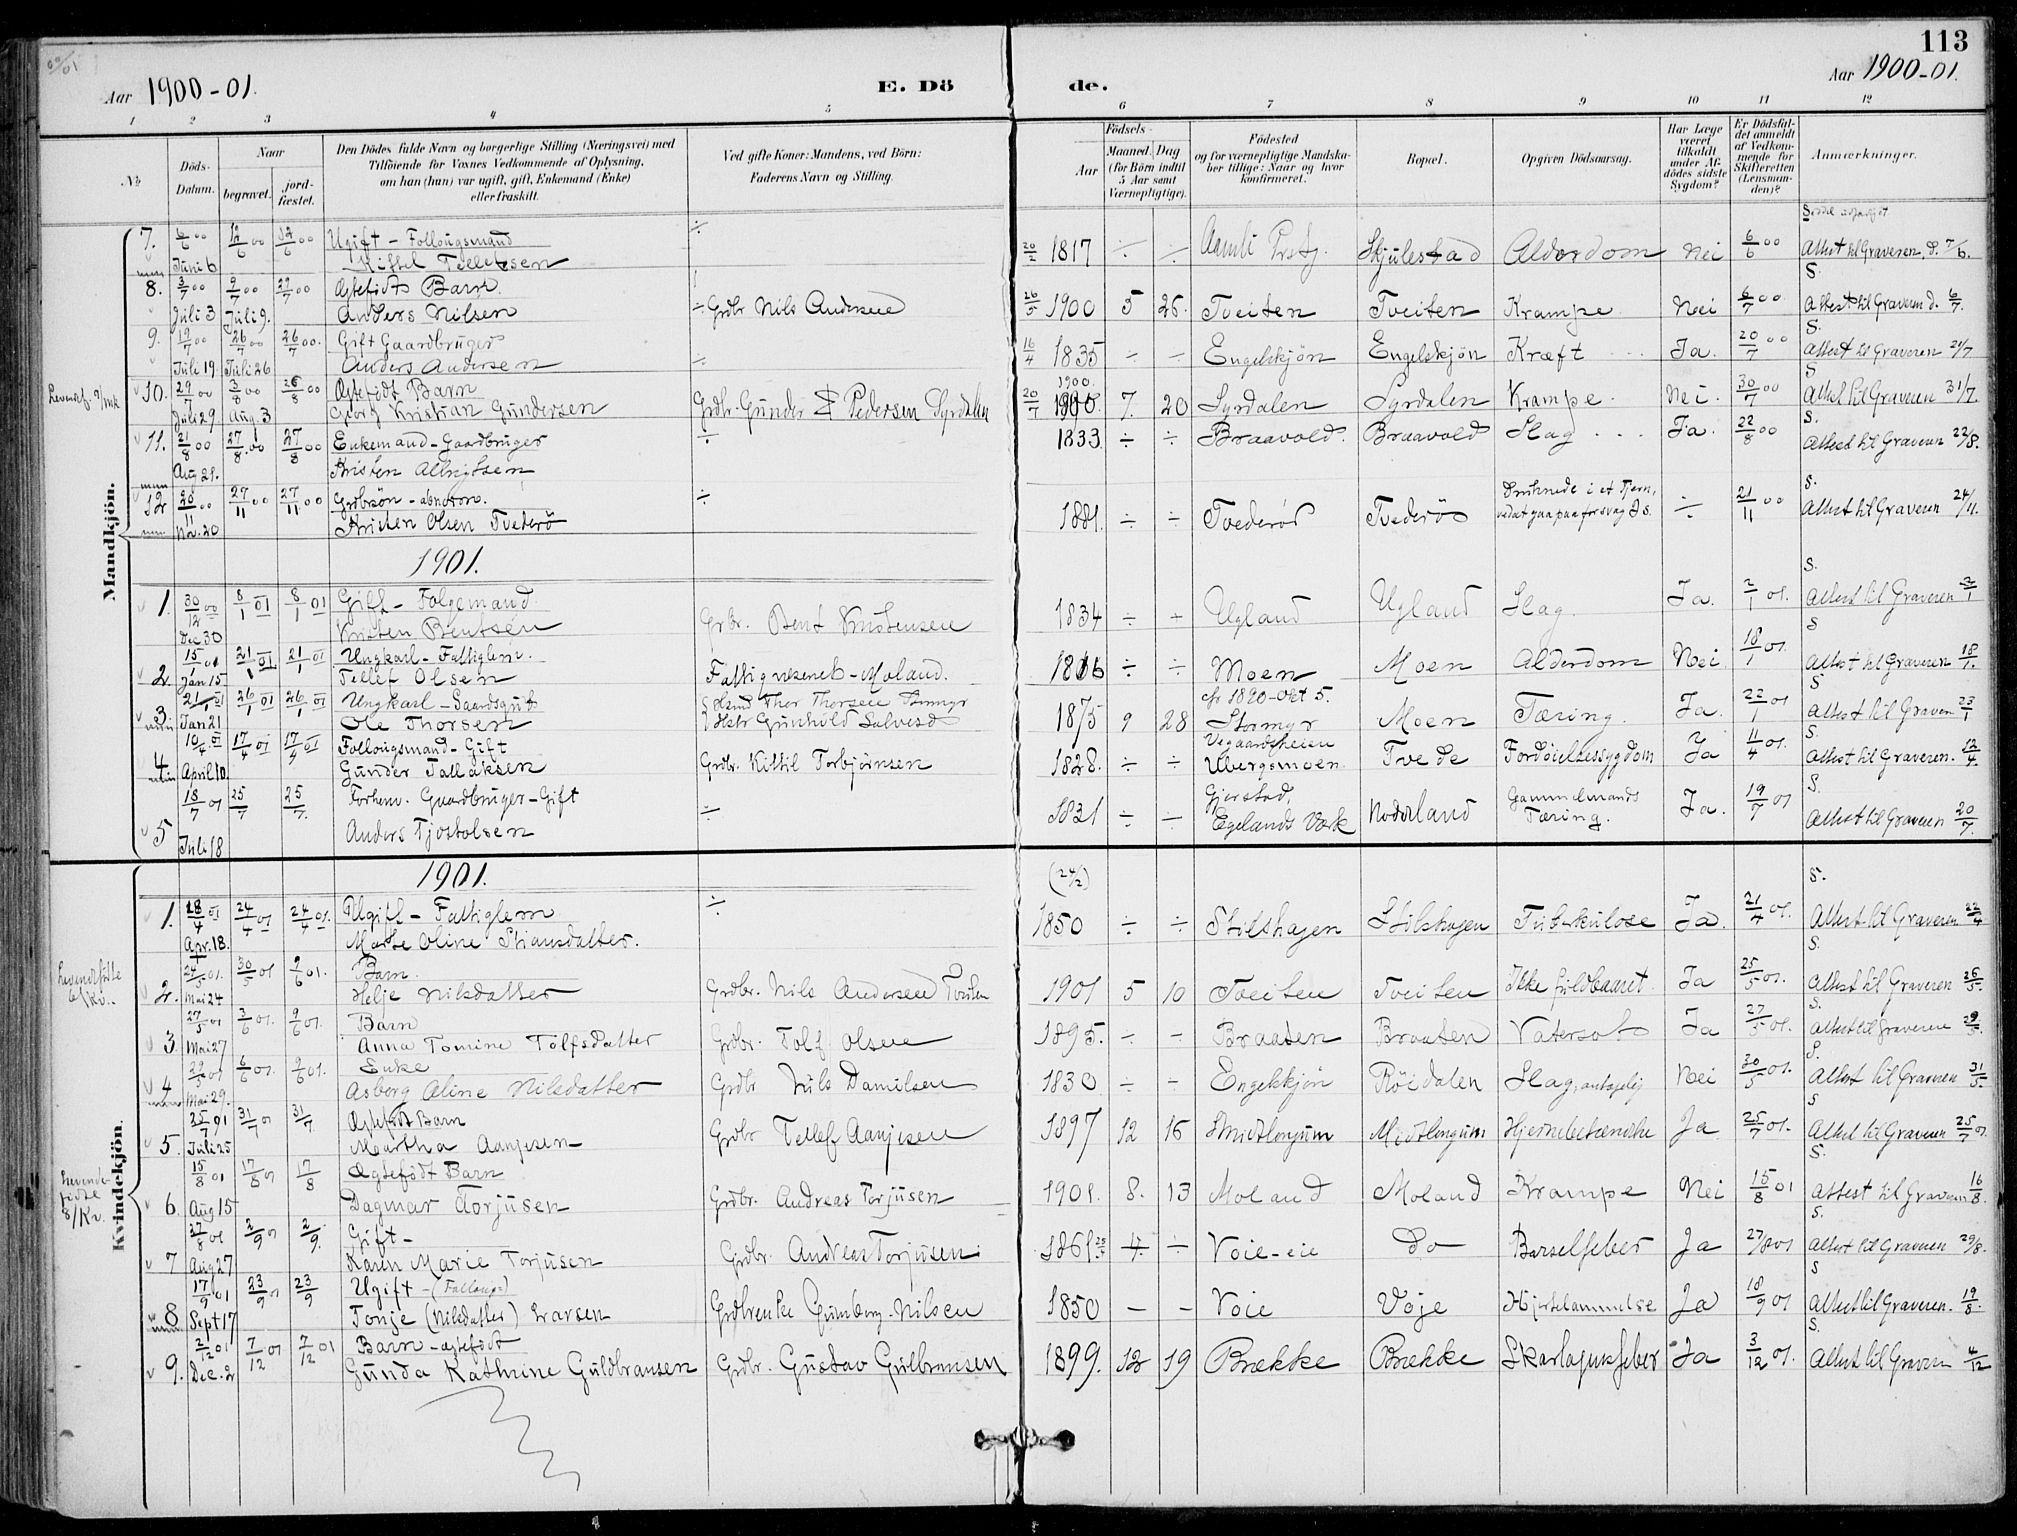 113
Aar 1900-01.
E. Dö de.
Aar 1900-01.
1 2 3 4 5 6 7 8 9 10 11 12
№
Döds-Datum.
Naar
begravet.
jord-fæstet.
Den Dödes fulde Navn og borgerlige Stilling (Næringsvei) med
Tilföiende for Voxnes Vedkommende af Oplysning,
om han (hun) var ugift, gift, Enkemand (Enke)
eller fraskilt.
Ved gifte Koner: Mandens, ved Börn:
Faderens Navn og Stilling.
Födsels-
Aar
Maaned. Dag
(for Börn indtil
5 Aar samt
Værnepligtige).
Födested
og for værnepligtige Mandska-
ber tillige: Naar og hvor
konfirmeret.
Bopæl.
Opgiven Dödsaarsag.
Har Læge
været
tilkaldt
under Af-
dödes sidste
Sygdom?
Er Dödsfal-
det anmeldt
af Vedkom-
mende for
Skifteretten
(Lensman-
den)?
Anmærkninger.
Mandkjön.
7. 6/6 00 12/6 00 12/6 00 Ugift - Follougsmand ÷
Juni 6 Kittel Tellefsen 20/2 1817 ÷ ÷ Aamli Skjulestad Alderdom Nei 6/6 00 Attest til Graveren, d. 7/6.
8. 3/7 00 9/7 00 29/7 00 Ægtefødt Barn. S.
Juli 3 Juli 9. Anders Nilsen ÷ Grdbr Nils Andersen 26/5 1900 5 26. Tveiten Tveiten Krampe Nei 6/7 00 Attest til Graveren d. 6/7.
9. 19/7 00 26/7 00 26/7 00. Gift Gaardbruger S.
Juli 19 Juli 26 Anders Andersen ÷ 16/4 1835 ÷ ÷ Engelskjøn Engelskjøn Kræft Ja. 20/7 00 Attest til Graveren 21/7
10. 29/7 00 3/8 00 26/8 00 Ægtefødt Barn 1900. S
Juli 29 Aug. 3 Georg Kristian Gundersen Grdbr. Gunder Pedersen Syrdalen 20/7 1900 7. 20 Syrdalen Syrdalen Krampe. Nei. 30/7 00 Attest til Graveren 31/7.
11. 21/8 00 27/8 00 27/8 00 Enkemand - Gaardbruger ÷ 1833 ÷ ÷ Braavold. Braavold Slag Ja. 22/8 00 S. Attest til Graveren 22/8.
Aug 21. Kristen Albrigtsen
12 20/11 00 27/11 00 27/11 00 Grdbrsøn - abnorm. ÷ Druknede i et Tjern, S.
Nov. 20 Kristen Olsen Tvederø 1881. ÷ ÷ Tvederø Tvederø ved at gaa paa for svag Is. ÷ 21/11 00 Attest til Graveren 24/11.
1901.
1. 30/12 00 8/1 01 8/1 01 Gift - Folgemand S.
Dec 30 Kristen Bentsen Grbr. Bent Kristensen 1834 ÷ ÷ Ugland Ugland Slag Ja. 2/1 01. Attest til Graveren 3/1
2. 15/1 01 21/1 01 21/1 01 Ungkarl - Fattiglem. S
Jan 15 Tellef Olsen Fattigvæsenet - Moland. 1816 ÷ ÷ Moen Moen Alderdom Nei 18/1 01 Attest til Graveren 18/1.
3 21/1 01 26/1 01 26/1 01 Ungkarl - Gaardsgut Thor Thorsen cfr 1890 - Okt 5. S
Jan 21 Ole Thorsen Hstr Gunhild Salvesd 1875 9 28 Stormyr Moen Tæring. Ja. 22/1 01 Attest til Graven 23/1
4 10/4 01 17/4 01 17/4 01 Follougsmand - Gift Vegaardsheien S.
April 10. Gunder Tallaksen Grdbr. Kittil Torbjørnsen 1828. ÷ ÷ Ubergsmoen. Tvede Fordøielsessygdom Ja 11/4 01. Attest til Graveren. 12/4.
18/7 01 25/7 25/7. Forhenv. Gaardbruger - Gift ÷ Gjerstad, Gammelmands S.
5 Juli 18 Anders Tjostolsen 1831 ÷ ÷ Egelands Værk Ja. 19/7 01 Tæring. Attest til Graveren 20/7.
Kvindekjön.
1901.
(24/2) S.
1. 18/4 01 24/4 01 24/4 01. Ugift - Fattiglem ÷
Apr. 18. Marte Oline Stiansdatter. 1850 ÷ ÷ Stilshagen Stilshagen Tuberkulose Ja. 21/4 01. Attest til Graveren 22/4
2. 24/5 01. 30/5 01 9/6 01. Barn. S.
Mai 24 Helje Nilsdatter Grdbr. Nils Andersen Tveiten 1901 5 10 Tveiten Tveiten Ikke fuldbaaret. Ja 25/5 01. Attest til Graveren 26/5.
3. 27/5 01 3/6 01. 9/6 01. Barn S.
Mai 27 Anna Tomine Tolfsdatter Grdbr. Tolf Olsen 1895. ÷ ÷ Braaten Braaten Vatersot Ja 27/5 01. Attest til Graveren 29/5.
4 29/5 01 6/6 01. 9/6 01. Enke S.
Mai 29. Asborg Aline Nilsdatter Grdbr Nils Danielsen 1830 ÷ ÷ Engelskjøn Røisdalen Slag, antagelig Nei 30/5 01. Attest til Graveren 31/5.
5. 25/7 01 31/7 01 31/7. Ægtefødt Barn S
Juli 25 Martha Aanjesen Grdbr Tellef Aanjesen 1897 12 16 Midtlongum Midtlongum Hjernebetændelse Ja 25/7 01. Attest til Graveren 25/7 01.
6. 15/8 01 17/8 01 17/8 Ægtefødt Barn S.
Aug 15 Dagmar Torjusen Grdbr. Andreas Torjusen 1901. 8. 13 Moland Moland Krampe Nei 15/8 01 Attest til Graveren 16/8.
7 27/8 01 2/9 01 2/9. Gift - S.
Aug 27 Karen Marie Torjusen Grdbr. Andreas Torjusen. 1861 ÷ Voie-eie do Barselfeber Ja 27/8 01 Attest til Graveren 29/8.
8 17/9 01 23/9 01 23/9 Ugift - S
Sept 17 Tonje (Nilsdatter) Larsen Grdbrenke Gumborg Nilsen 1850 — — Voie Voje Hjertelammelse Ja 18/9 01 Attest til Graveren. 19/8.
9. 2/12 01 7/12 01 7/12 01 Barn - ægtefødt S.
Dec. 2 Gunda Kathrine Guldbransen Grdbr. Gustav Gulbransen 1899. 12 19 Brække Brække Skarlagensfeber Ja 3/12 01. Attest til Graveren 4/12